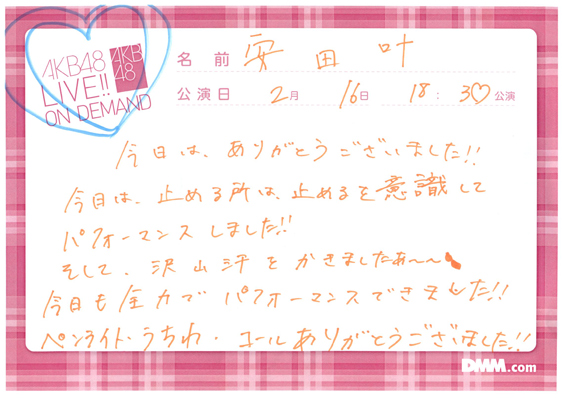 AKB48
LIVE!!
ON DEMAND
AKB
48
名前 安田 叶
公演日 2月 16日 18:30 公演
今日は、ありがとうございました!!
今日は、止める所は、止めるを意識して
パフォーマンスしました!!
そして、沢山汗をかきましたぁ〜〜
今日も全力でパフォーマンスできました!!
ペンライト・うちわ・コールありがとうございました!!
DMM.com